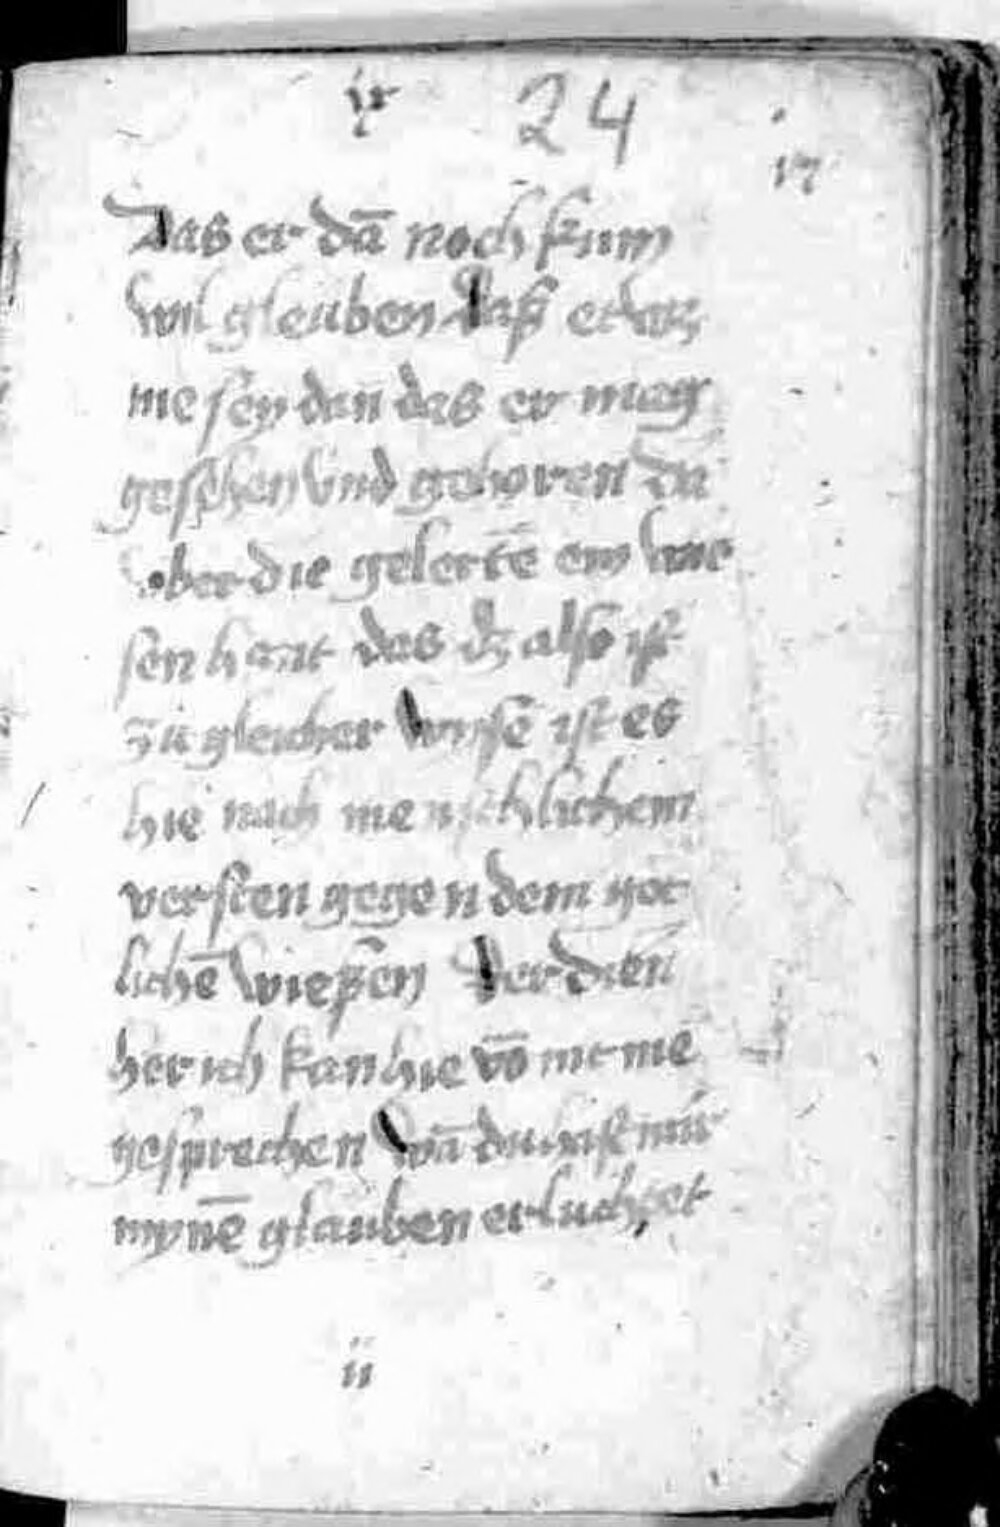 24
17
Das er dā noch kum
wil gleuben daß etwz
me sey dan das er mag
gesehen vnd gehoren Da
ober die gelertē em wie
sen hant das dz also ist
zü glicher wysē ist es
hie nach menschlichem
versten gegen dem got
lichē wießen Der dien
her ich kan hie vō nit me
gesprechen wā du hast mir
mynē glauben erluchtet
ii